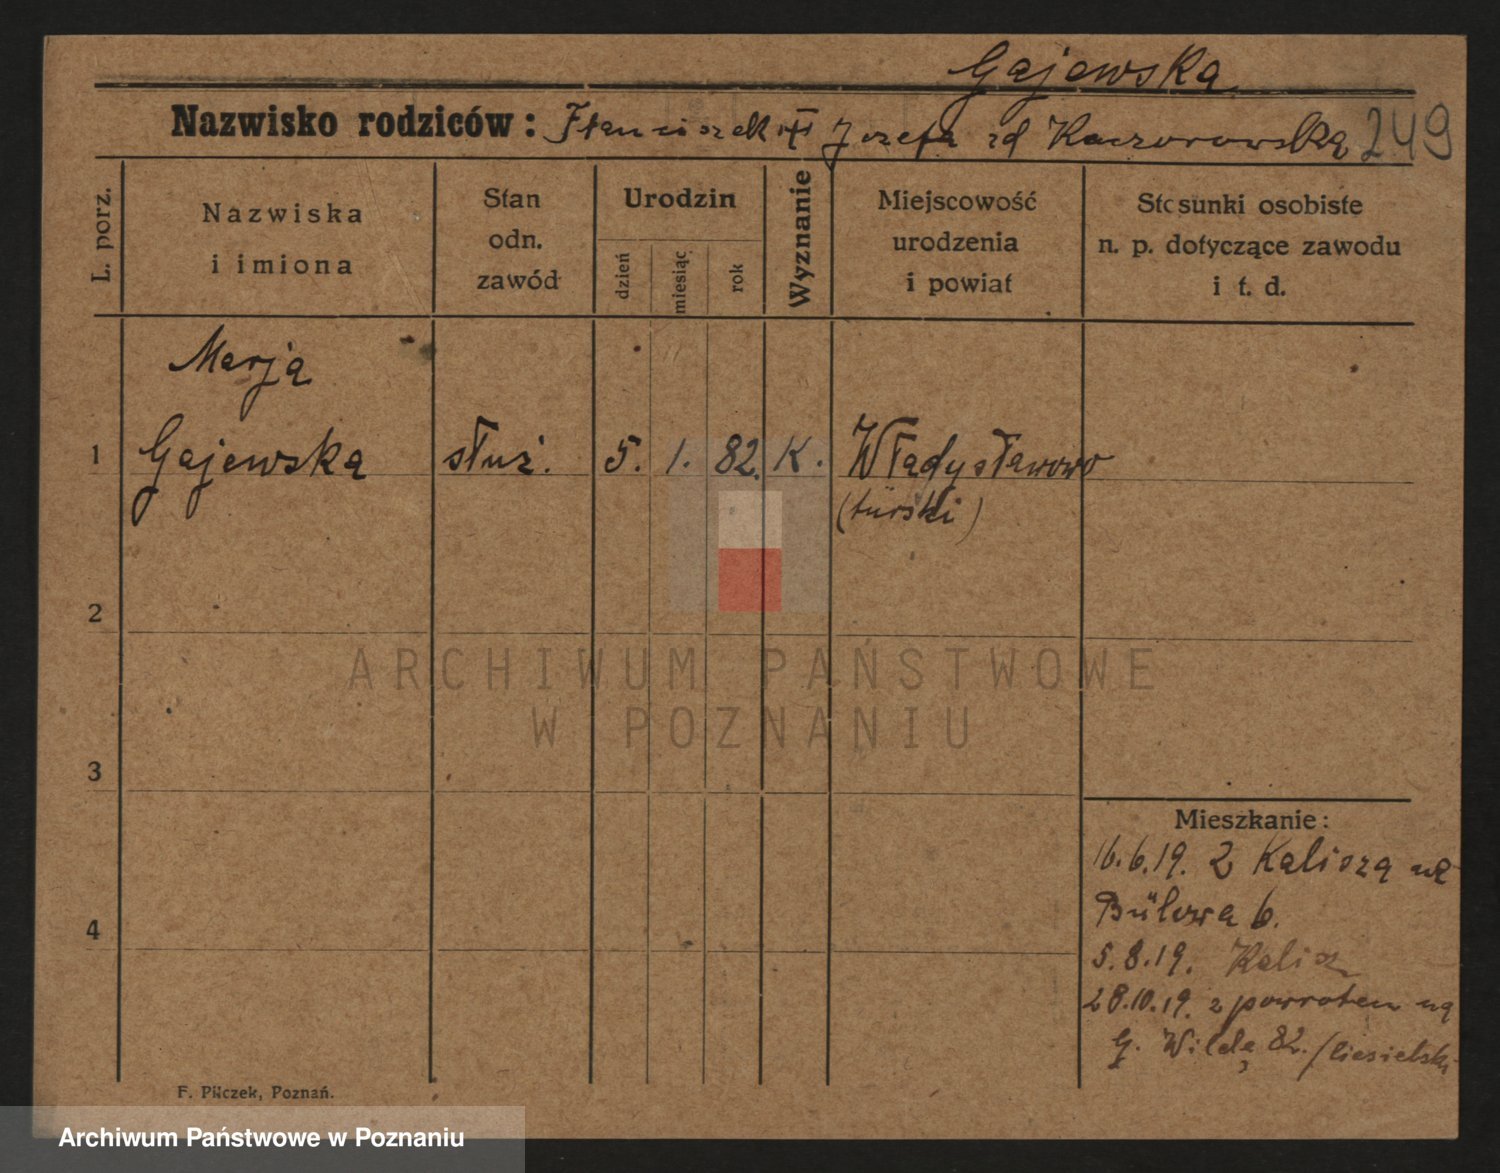 Gajewska
Nazwisko rodziców: Franciszek i Józefa zd Kaczorowska 249
L. porz.
Nazwiska i imiona
Stan odn. zawód
Urodzin
dzień
miesiąc
rok
Wyznanie
Miejscowość urodzenia i powiat
Stosunki osobiste n. p. dotyczące zawodu i t. d.
Marja
1 Gajewska służ. 5. 1. 82. K. Władysławowo
(turski)
2
ARCHIWUM PAŃSTWOWE
W POZNANIU
3
Mieszkanie:
16.6.19. z Kalisza
Bülowa 6.
4
5.8.19. Kalisz
28.10.19. z powrotem na
G. Wilda 82. /Ciesielski
F. Pilczek, Poznań.
Archiwum Państwowe w Poznaniu